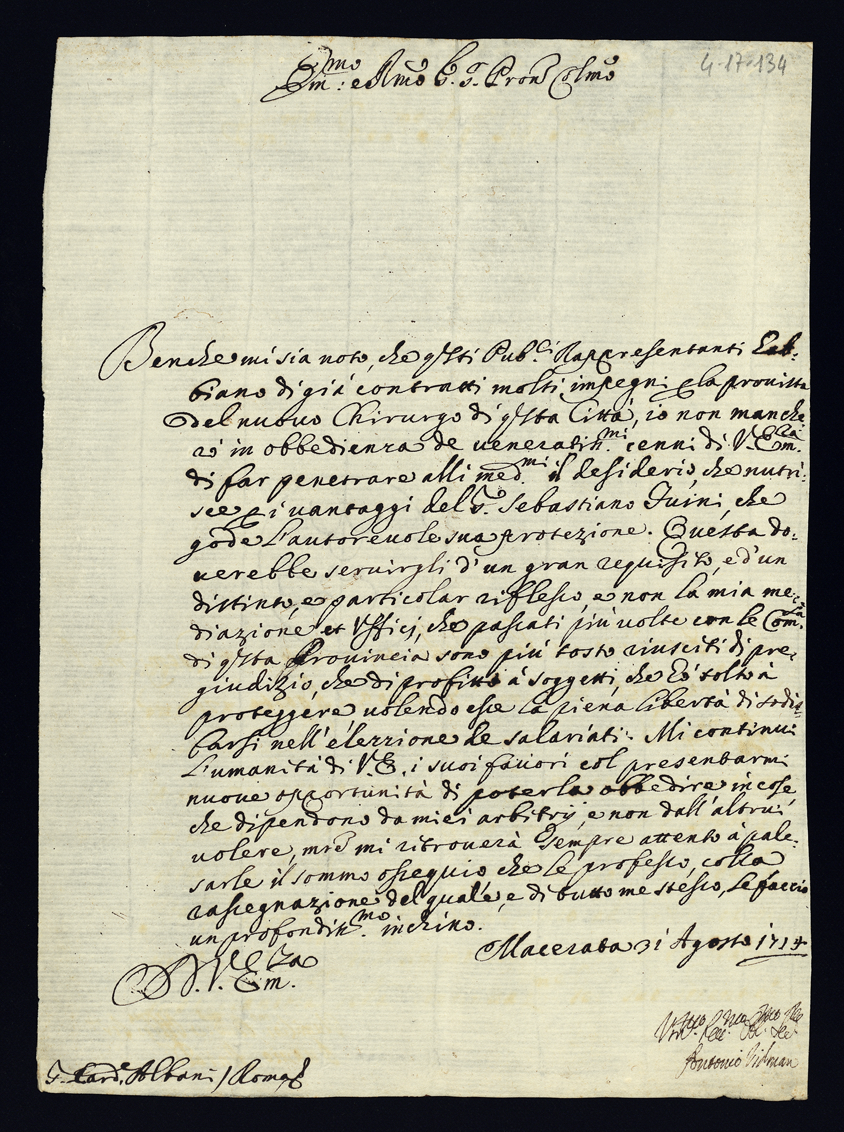 4-17-134
Em:mo e Rmo Sig.r Pron Colmo
Benche mi sia noto, che q'sti Pub.ci Rappresentanti hab-
biano di già contratti molti impegni p la provista
del nuovo Chirurgo di q'sta Città, io non manche
rò in obbedienza de veneratiss.mi cenni di V. Em.za
di far penetrare alli med.mi il desiderio, che nutri-
sce p i vantaggi del S.r Sebastiano Guini, che
gode l'autorevole sua protezione. Questa do-
verebbe servirgli d'un gran requisito, e d'un
distinto, e particolar riflesso, e non la mia me-
diazione et Ufficj, che passati più volte con le Com.tà
di q'sta Provincia sono più tosto riusciti di pre-
giudizio, che di profitto à soggetti, che hò tolto à
proteggere, volendo esse la piena libertà di sodis-
farsi nell'elezzione de salariati. Mi continui
l'umanità di V.E. i suoi favori col presentarmi
nuove opportunità di poterla obbedire in cose
che dipendono da miei arbitrij, e non dall'altrui
volere, mre mi ritroverà sempre attento à pale-
sarle il sommo ossequio che le professo, colla
rassegnazione del quale, e di tutto me stesso, le faccio
un profondiss.mo inchino.
Macerata 31 Agosto 1714
D. V. Em.za
S. Card. Albani / Roma
Antonio